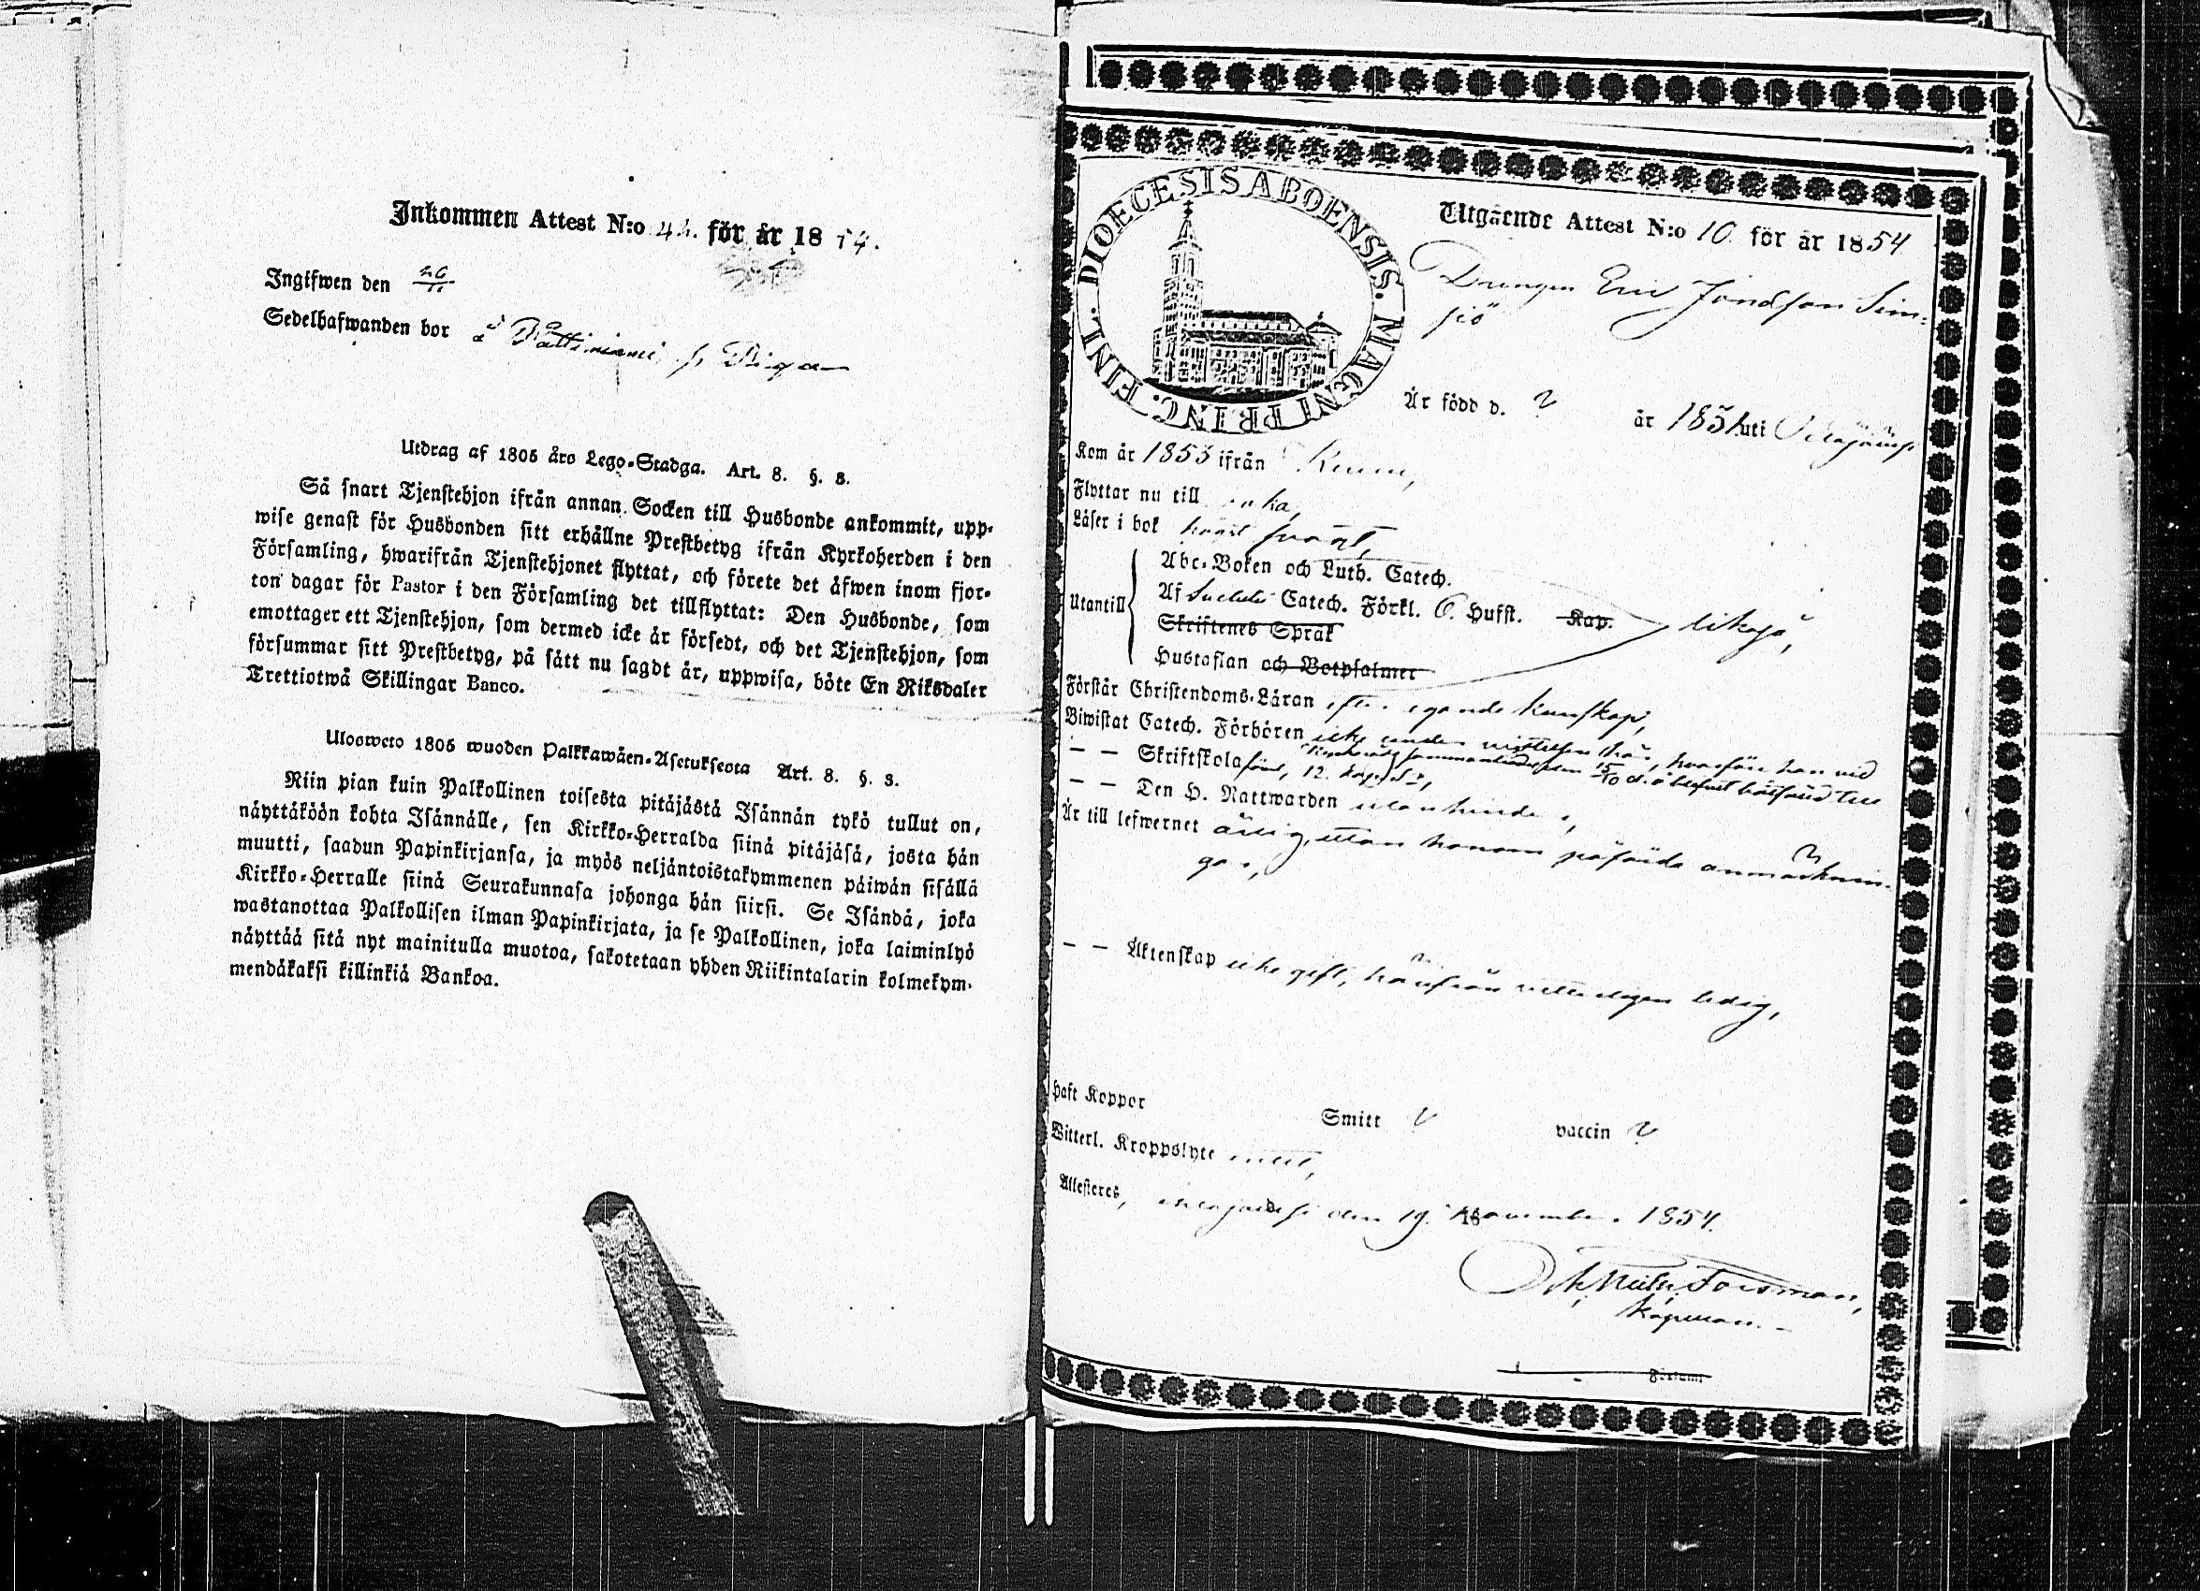 Inkommen Attest N:o 42. för år 1854.
Ingifwen den 26/11
Sedelhafwanden bor å
Utdrag af 1805 års Lego-Stadga. Art. 8. §. 3.
Så snart Tjenstehjon ifrån annan Socken till Husbonde ankommit, upp-
wise genast för Husbonden sitt erhållne Prestbetyg ifrån Kyrkoherden i den
Församling, hwarifrån Tjenstehjonet flyttat, och förete det äfwen inom fjor-
ton dagar för Pastor i den Församling det tillflyttat: Den Husbonde, som
emottager ett Tjenstehjon, som dermed icke är försedt, och det Tjenstehjon, som
försummar sitt Prestbetyg, på sätt nu sagdt är, uppwisa, böte En Riksdaler
Trettiotwå Skillingar Banco.
Ulosweto 1805 wuoden Palkkawäen-Asetuksesta Art. 8. §. 3.
Niin pian kuin Palkollinen toisesta pitäjästä Isännän tykö tullut on,
näyttäköön kohta Isännälle, sen Kirkko-Herralda siinä pitäjäsä, josta hän
muutti, saadun Papinkirjansa, ja myös neljäntoistakymmenen päiwän sisällä
Kirkko-Herralle siinä Seurakunnasa johonga hän siirsi. Se Isändä, joka
wastanottaa Palkollisen ilman Papinkirjata, ja se Palkollinen, joka laiminlyö
näyttää sitä nyt mainitulla muotoa, sakotetaan yhden Riikintalarin kolmekym-
mendäkaksi killinkiä Bankoa.
DIOECESIS ABOENSIS. MAGNI PRINC. FINL.
Utgående Attest N:o 10 för år 1854
Drengen Eric Jonasson Sim-
sjö
Är född d. ? år 1831 uti
Kom år 1853 ifrån Kumo,
Flyttar nu till
Läser i bok svagt,
Abc-Boken och Luth. Catech.
Utantill Af Svebelii Catech. Förkl. 6. Hufst. Kap. likaså,
Skriftenes Språk
Hustaflan och Botpsalmer
Förstår Christendoms-Läran efter egande kunskap,
Biwistat Catech. Förhören icke under vistelsen här, hvarföre han vid
15/10 d. å. blifvit bötfäld till
— — Skriftskola förut,
— — Den H. Nattwarden utan hinder,
Är till lefwernet ärlig, utan honom påförda anmärknin-
gar,
— — Äktenskap icke gift, härifrån veterligen ledig,
Haft Koppor Smitt ? vaccin ?
Witterl. Kroppslyte intet,
Attesteres, den 19. November 1854.
Forsman,
Kapellan.